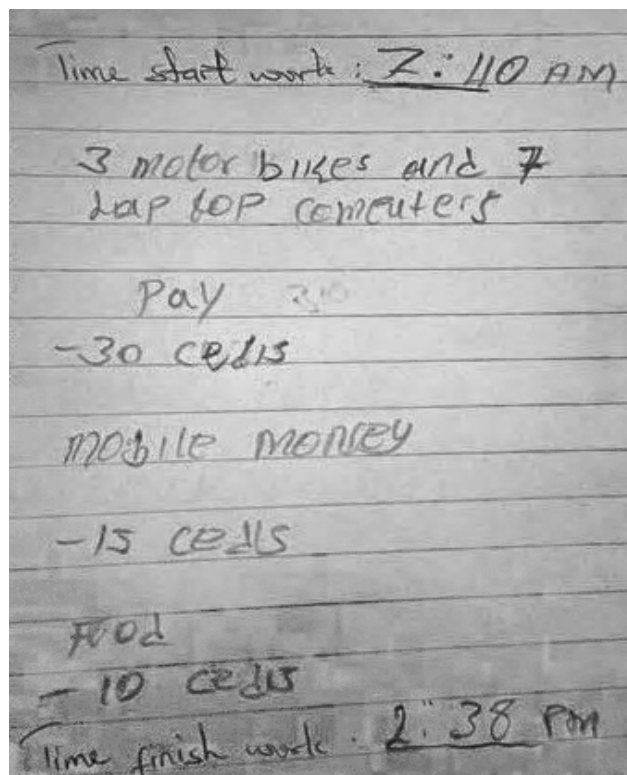 Time start work : 7:40 AM
3 motor bikes and 7
Lap top computers
Pay 30
-30 cedis
mobile money
-15 cedis
Food
- 10 cedis
Time finish work : 2:38 PM